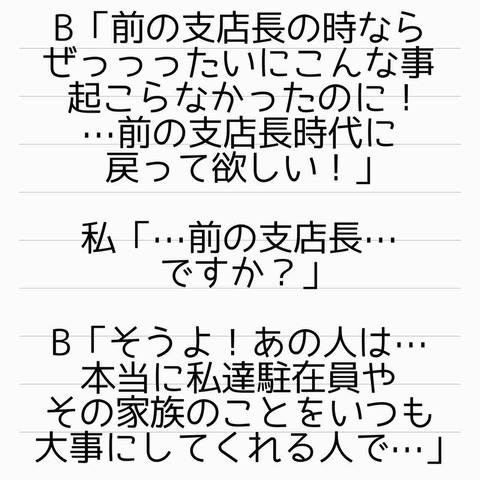 B「前の支店長の時なら
ぜっっったいにこんな事
起こらなかったのに！
…前の支店長時代に
戻って欲しい！」
私「…前の支店長…
ですか？」
B「そうよ！あの人は…
本当に私達駐在員や
その家族のことをいつも
大事にしてくれる人で…」